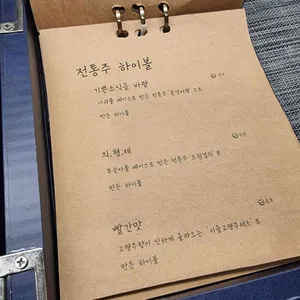 전통주 하이볼
기쁜소식을 바람
사과를 베이스로 만든 전통주 '문경바람'으로
만든 하이볼
의.형.제
복숭아를 베이스로 만든 전통주 '도원결의'로
만든 하이볼
빨간맛
고량주향이 진하게 올라오는 '서울고량주레드'로
만든 하이볼